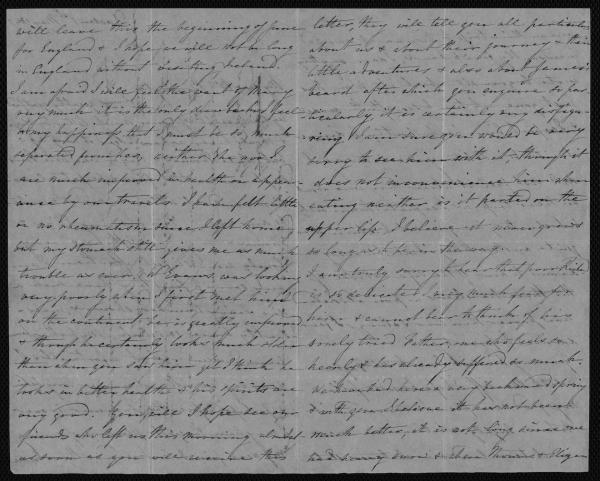 will leave this the beginning of June
for England & I hope we will not be long
in England without visiting Ireland.
I am afraid I will feel the want of Mary
very much it is the only drawback I feel
to my happiness that I must be so much
separated from her, neither she nor I
are much improved in health or appear-
ance by our travels. I have felt little
or no rheumatism since I left home,
but my stomach still gives me as much
trouble as ever. Mr Evans was looking
very poorly when I first met him
on the continent he is greatly improved
& though he certainly looks much older
than when you saw him yet I think he
looks in better health & his spirits are
very good. You will I hope see our
friends who left us this morning almost
as soon as you will receive this
letter, they will tell you all particulars
about us & about their journey & their
little adventures & also about James's
beard after which you enquire so par-
ticularly, it is certainly very disfigu-
ring I am sure you would be very
sorry to see him with it - though it
does not inconvenience him when
eating neither is it parted on the
upper lip I believe it never grows
so long as to be in the way.
I am truly sorry to hear that poor
is so delicate very much for
her & cannot bear to think of his
sorely tried Father, one who feels so
keenly & has already suffered so much.
We have had here a very backward spring
& with you I believe it has not been
much better, it is not long since we
had snow &